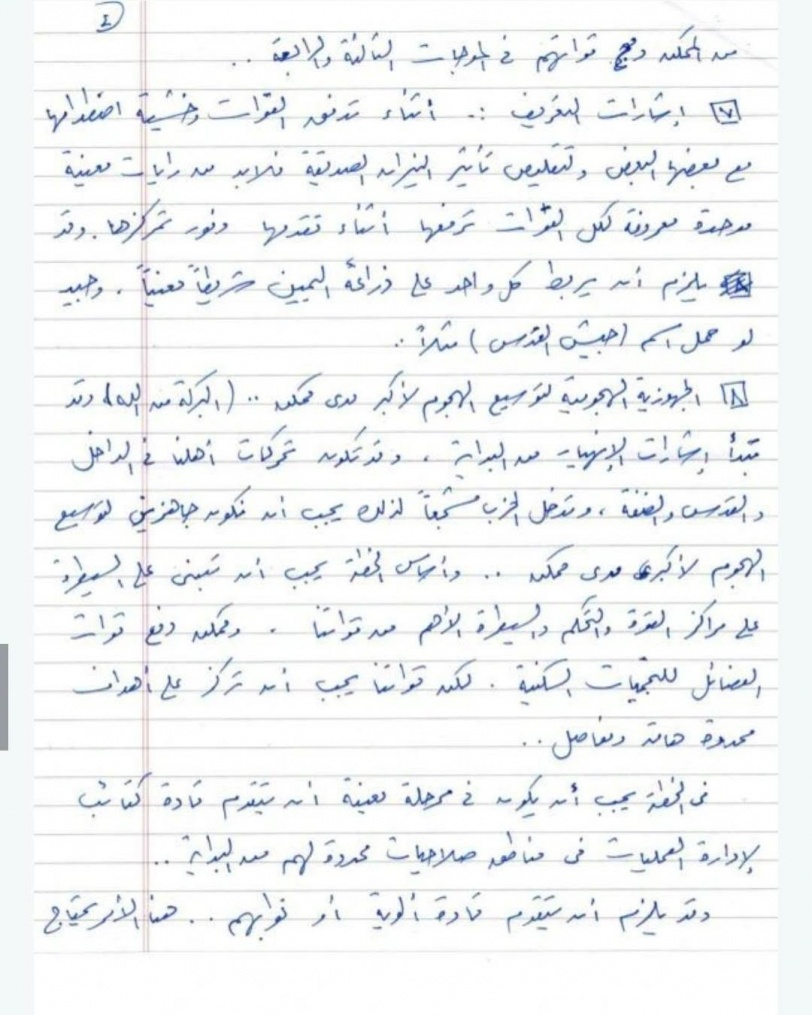 ٤
من الممكن دمج قواتهم في الموجات الثالثة والرابعة ..
٧ إشارات التعريف :. أثناء تدفق القوات وخشية اصطدامها
مع بعضها البعض ولتقليص تأثير النيران الصديقة فلابد من رايات معينة
موحدة معروفة لكل القوات ترفعها أثناء تقدمها وفور تمركزها. وقد
يلزم أن يربط كل واحد على ذراعه اليمين شريطاً معيناً. وحبيد
لو حمل اسم (جيش القدس) مثلاً..
٨ الجهوزية الهجومية لتوسيع الهجوم لأكبر مدى ممكن .. (البركة من الله) وقد
تبدأ إشارات الإنهيار من البداية، وقد تكون تحركات أهلنا في الداخل
والقدس والضفة، وتدخل الحزب مشجعاً لذلك يجب أن نكون جاهزين لتوسيع
الهجوم لأكبر مدى ممكن .. وأساس الخطة يجب أن تبنى على السيطرة
على مراكز القوة والتحكم والسيطرة الأهم من قواتنا. وممكن دفع قوات
الفصائل للتجمعات السكنية. لكن قواتنا يجب أن تركز على أهداف
محددة هامة ومفاصل..
في الخطة يجب أن يكون في مرحلة معينة أن يتقدم قادة كتائب
لإدارة العمليات في مناطق صلاحيات محددة لهم من البداية ..
وقد يلزم أن يتقدم قادة ألوية أو نوابهم .. هنا الأمر يحتاج